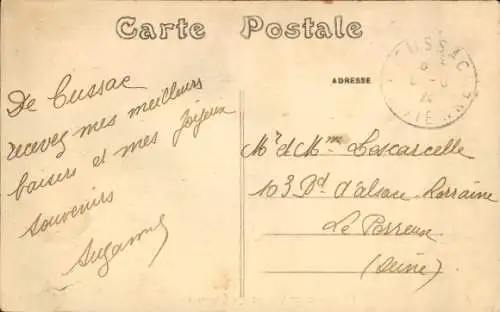 Carte Postale
ADRESSE
CUSSAC
VIENNE
De Cussac
recevez mes meilleurs
baisers et mes joyeux
souvenirs
Suzanne
Mr et Mme Loscarcelle
103 Bd d'alsace Lorraine
Le Perreux
(Seine)